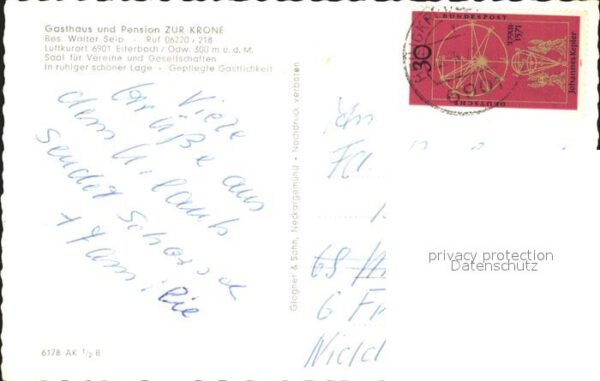 Gasthaus und Pension ZUR KRONE
Bes. Walter Seip · Ruf 06220 / 218
Luftkurort 6901 Eiterbach / Odw. 300 m ü. d. M.
Saal für Vereine und Gesellschaften
In ruhiger schöner Lage · Gepflegte Gastlichkeit
Viele
Grüße aus
dem Urlaub
sendet
+ Familie
6178 AK ½ B
Glogner & Sohn, Neckargemünd · Nachdruck verboten
30
DEUTSCHE BUNDESPOST
1571
Johannes Kepler
An
Fa
6 Fr
Nidd
privacy protection
Datenschutz